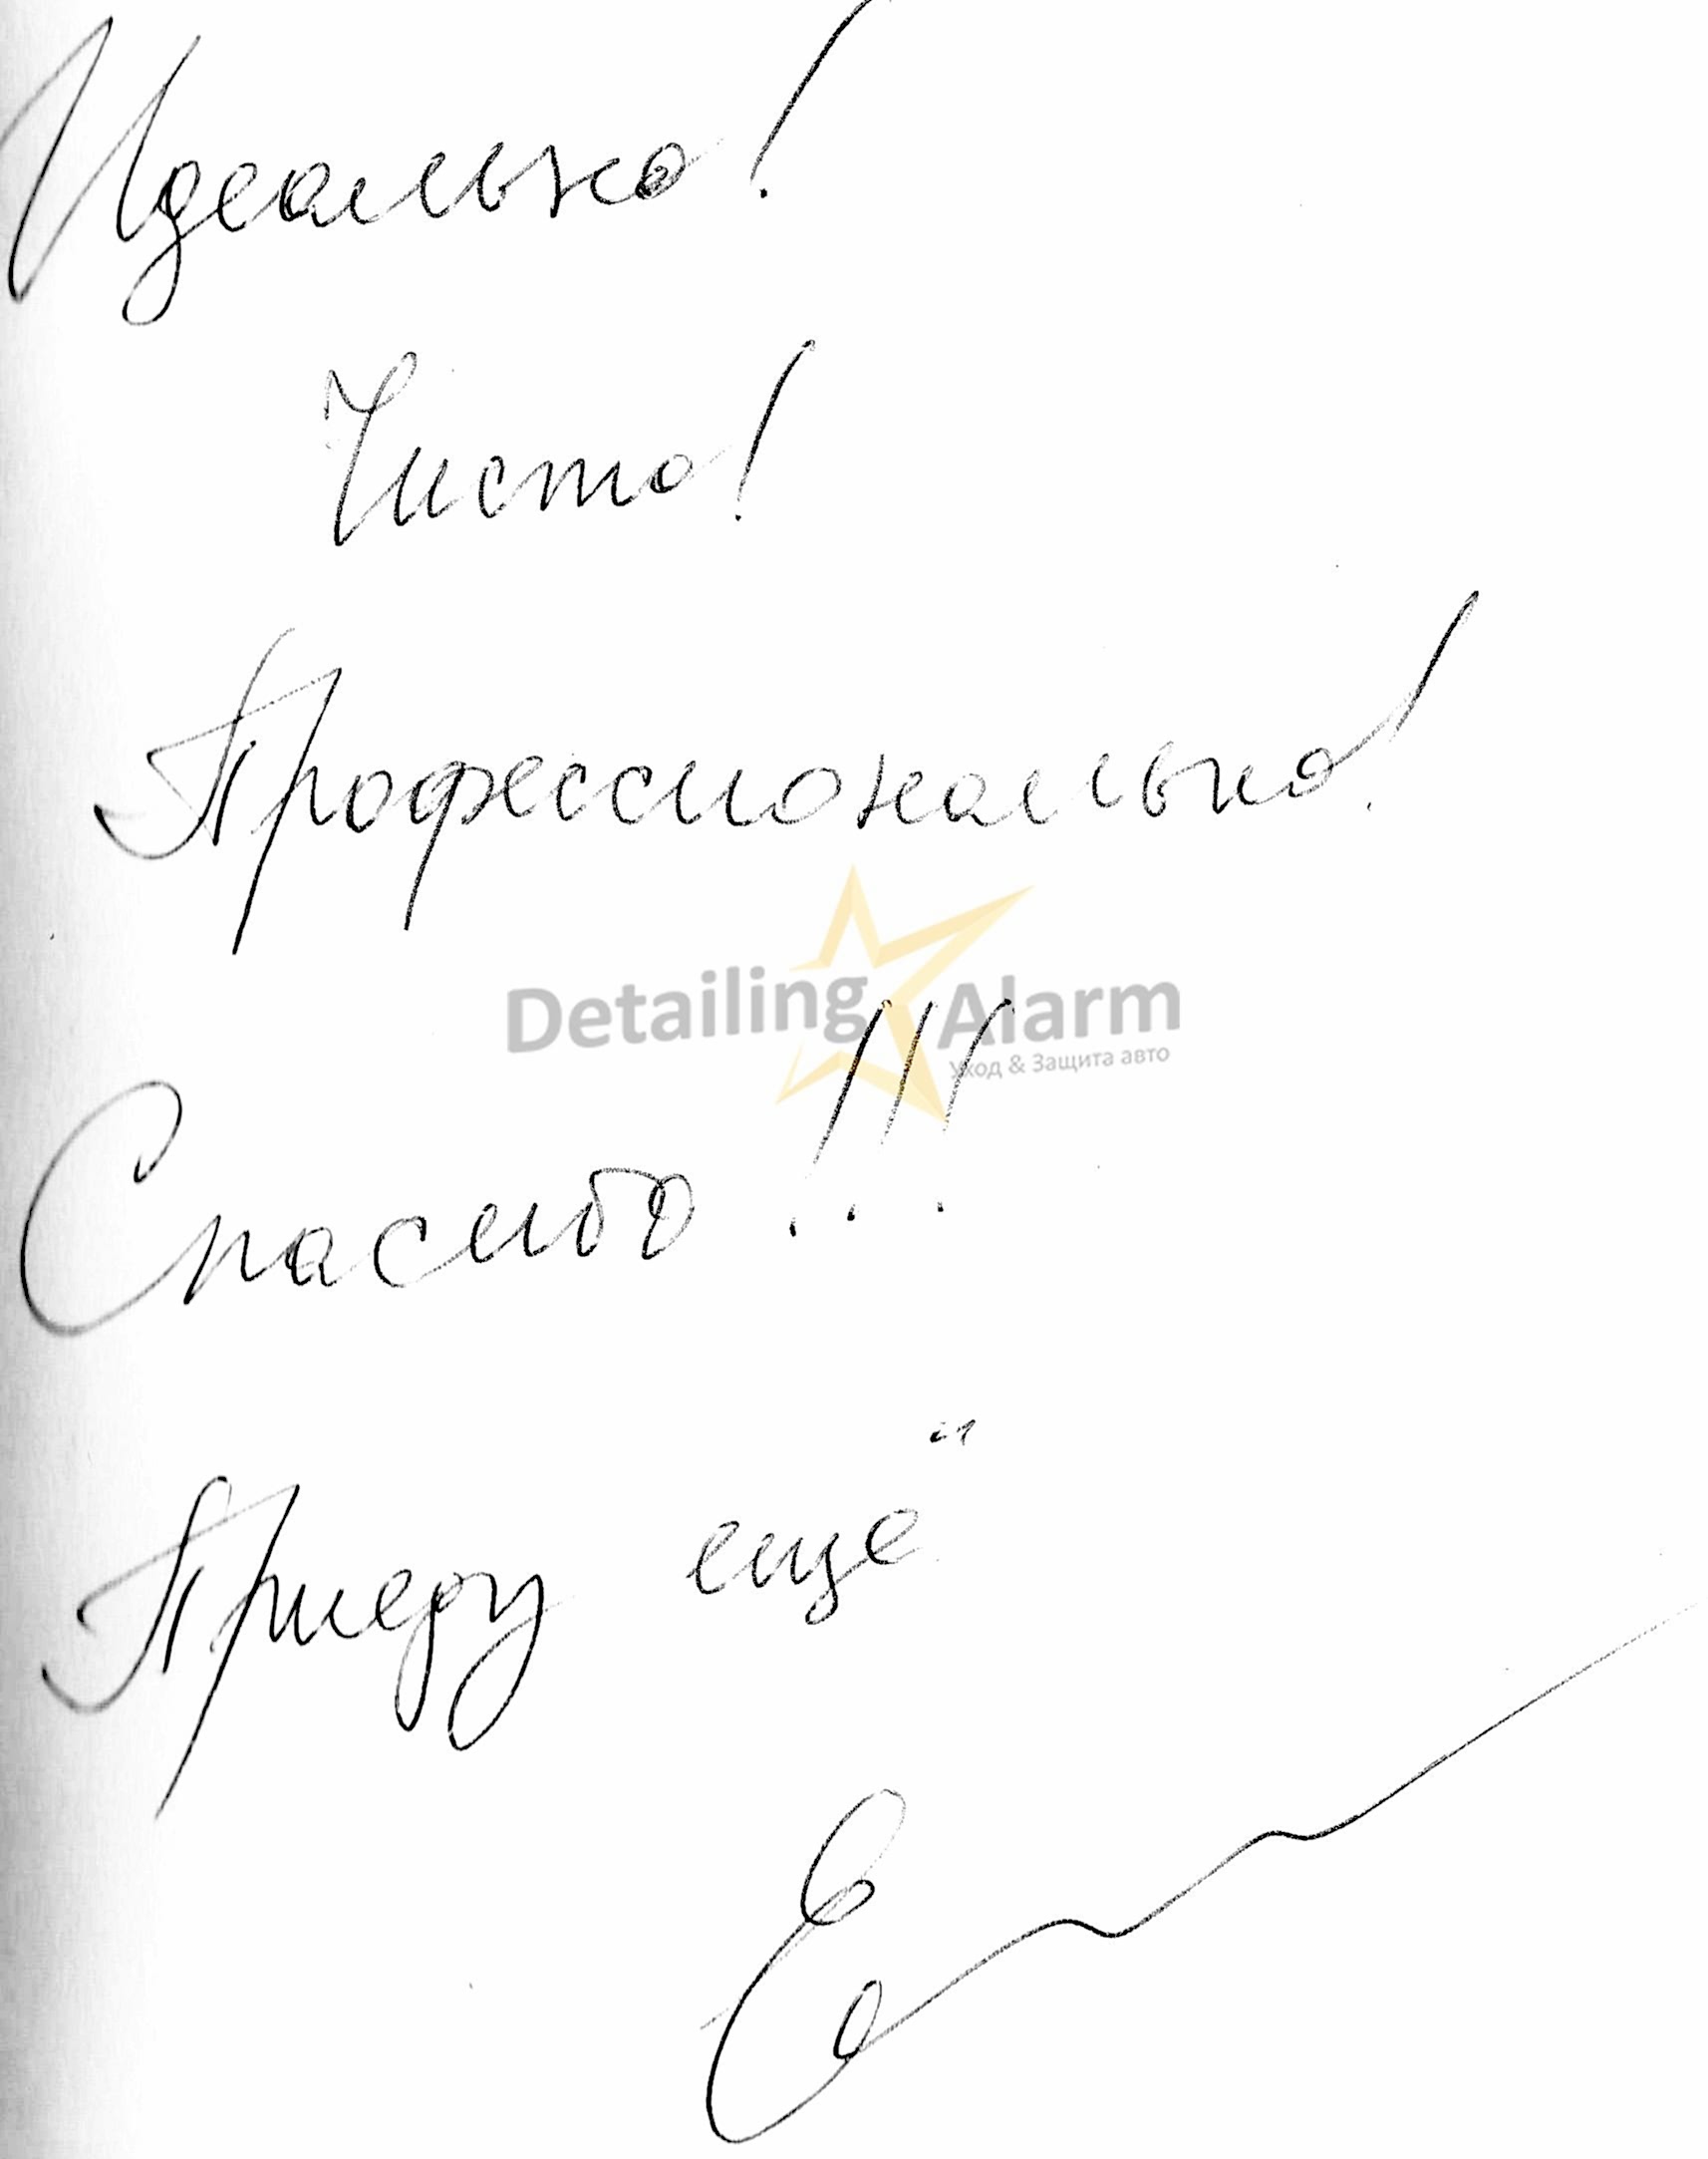 Идеально!
Чисто!
Профессионально!
Detailing Alarm
Уход & Защита авто
Спасибо!!!
Приеду ещё